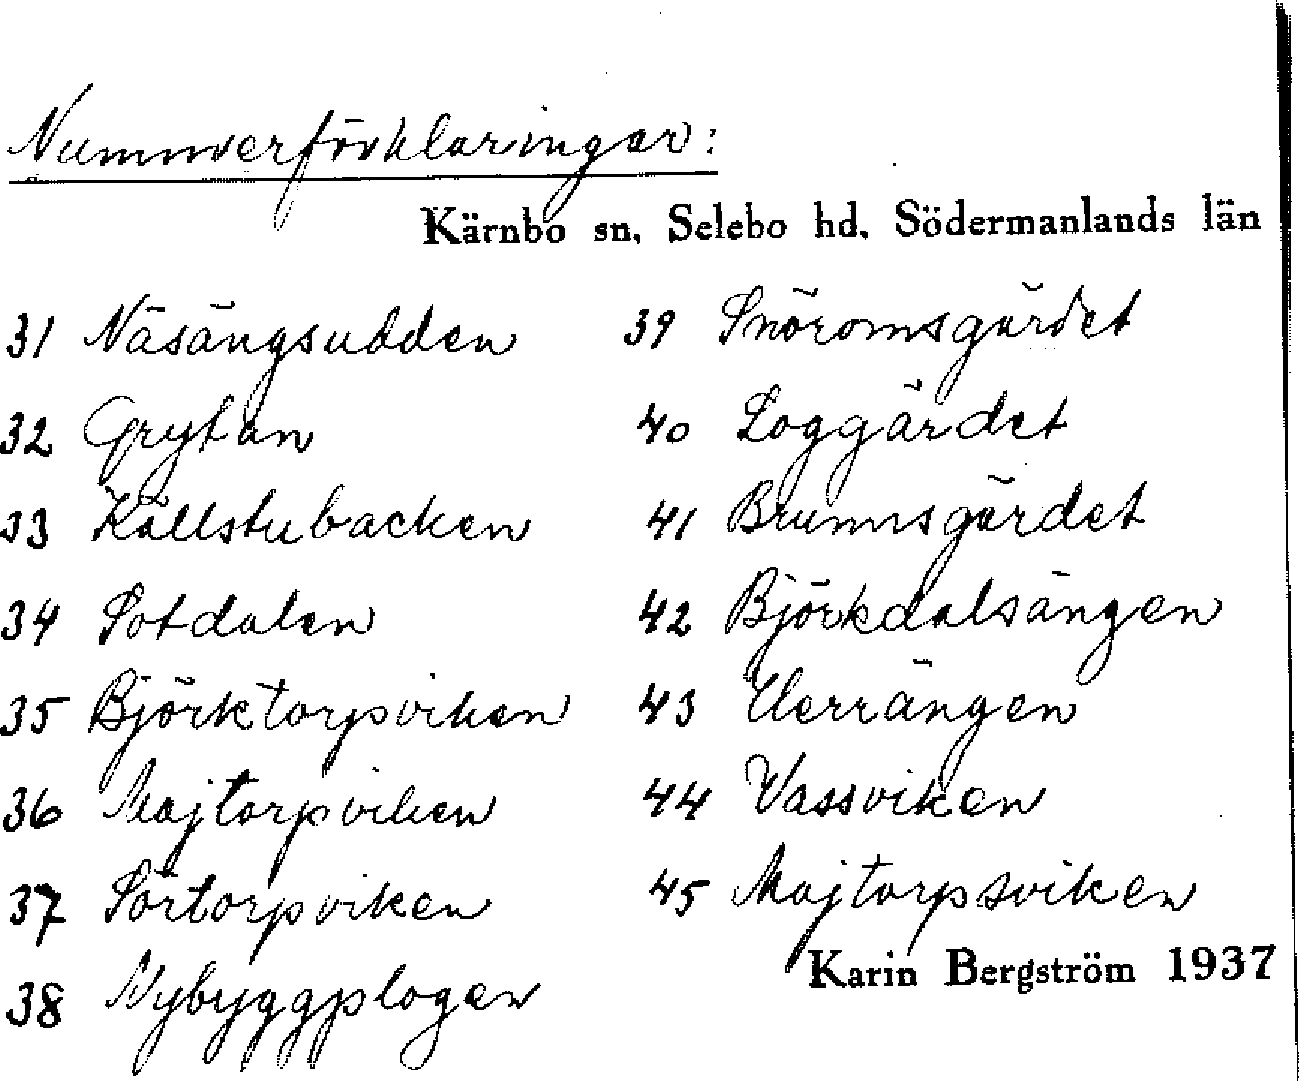 Nummerförklaringar:
Kärnbo sn, Selebo hd, Södermanlands län
31 Näsängsudden
32 Grytan
33 Källstubacken
34 Sotdalen
35 Björktorpsviken
36 Majtorpviken
37 Sörtorpviken
38 Nybyggplogen
39 Snöromsgärdet
40 Loggärdet
41 Brunnsgärdet
42 Björkdalsängen
43 Herrängen
44 Vassviken
45 Majtorpsviken
Karin Bergström 1937